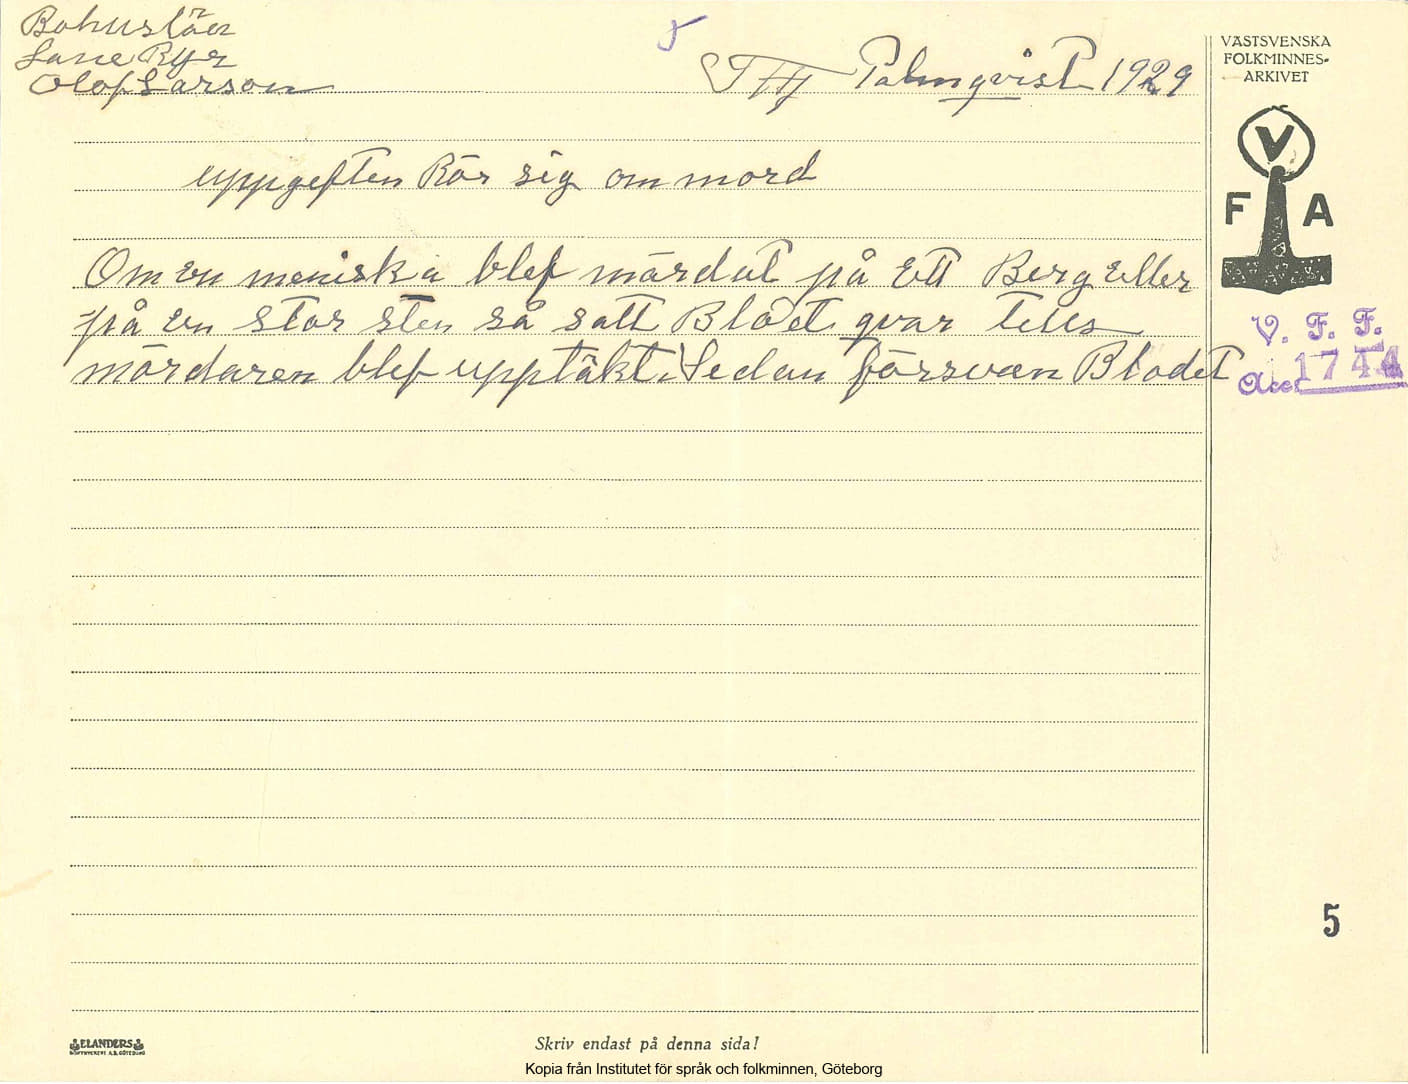 Bohuslän
Lane Ryr
Olof Larson
5
Palmqvist 1929
VÄSTSVENSKA
FOLKMINNES-
ARKIVET
V
F A
uppgeften Rör sig om mord
Om en meniska blef mördat på ett Berg eller
på en stor sten så satt Blodet qvar tells
mördaren blef upptäkt. Sedan försvan Blodet
V. F. F.
Acc. 1744
5
ELANDERS
BOKTRYCKERI A.B. GÖTEBORG
Skriv endast på denna sida!
Kopia från Institutet för språk och folkminnen, Göteborg